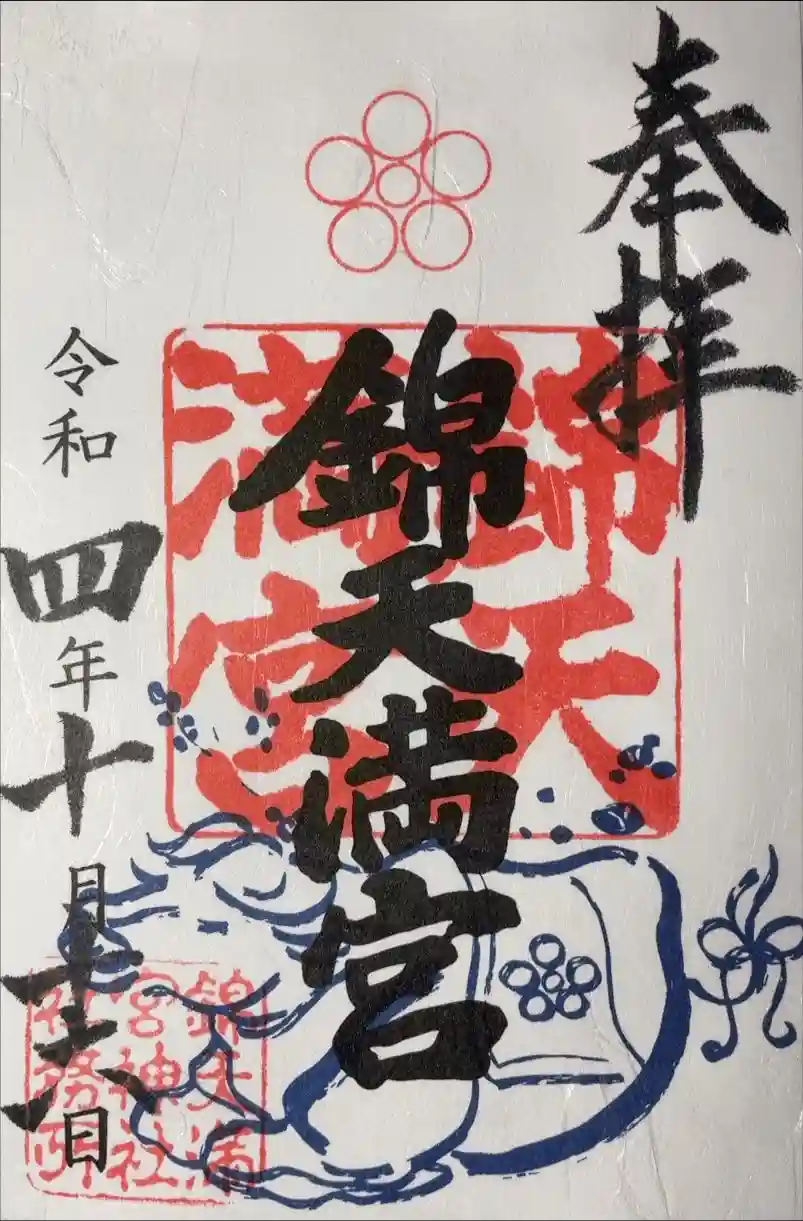 奉拝
錦天満宮
錦天満宮
令和四年十月十六日
錦天満宮神社社務所